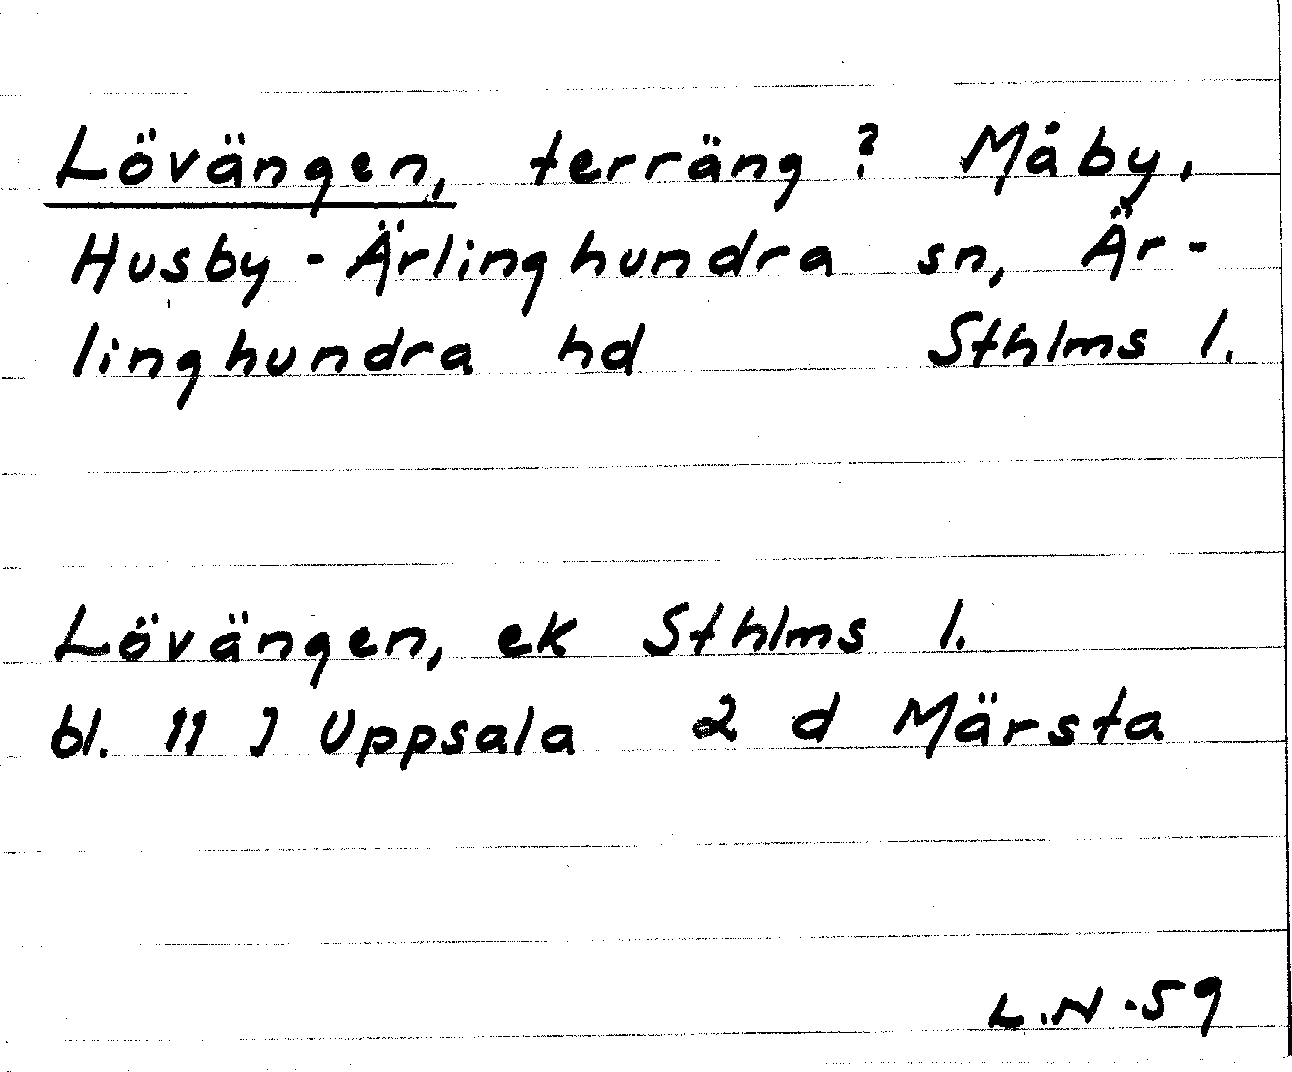 Lövängen, terräng? Måby,
Husby-Ärlinghundra sn, Är-
linghundra hd Sthlms l.
Lövängen, ek Sthlms l.
bl. 11 J Uppsala 2 d Märsta
L.N -59